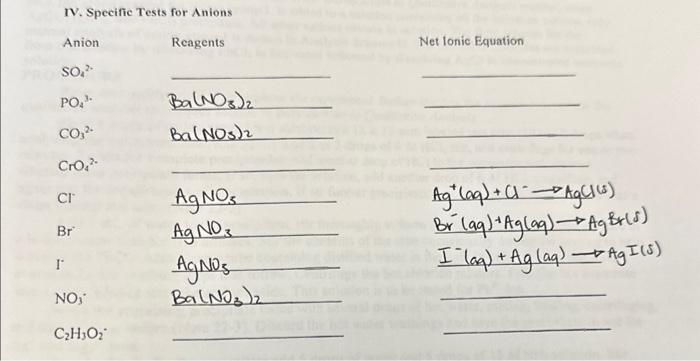 IV. Specific Tests for Anions
Anion Reagents Net Ionic Equation
SO₄²⁻
PO₄³⁻ Ba(NO3)2
CO₃²⁻ Ba(NO3)2
CrO₄²⁻
Cl⁻ AgNO3 Ag⁺(aq) + Cl⁻ → AgCl(s)
Br⁻ AgNO3 Br⁻(aq) + Ag(aq) → AgBr(s)
I⁻ AgNO3 I⁻(aq) + Ag(aq) → AgI(s)
NO₃⁻ Ba(NO3)2
C₂H₃O₂⁻